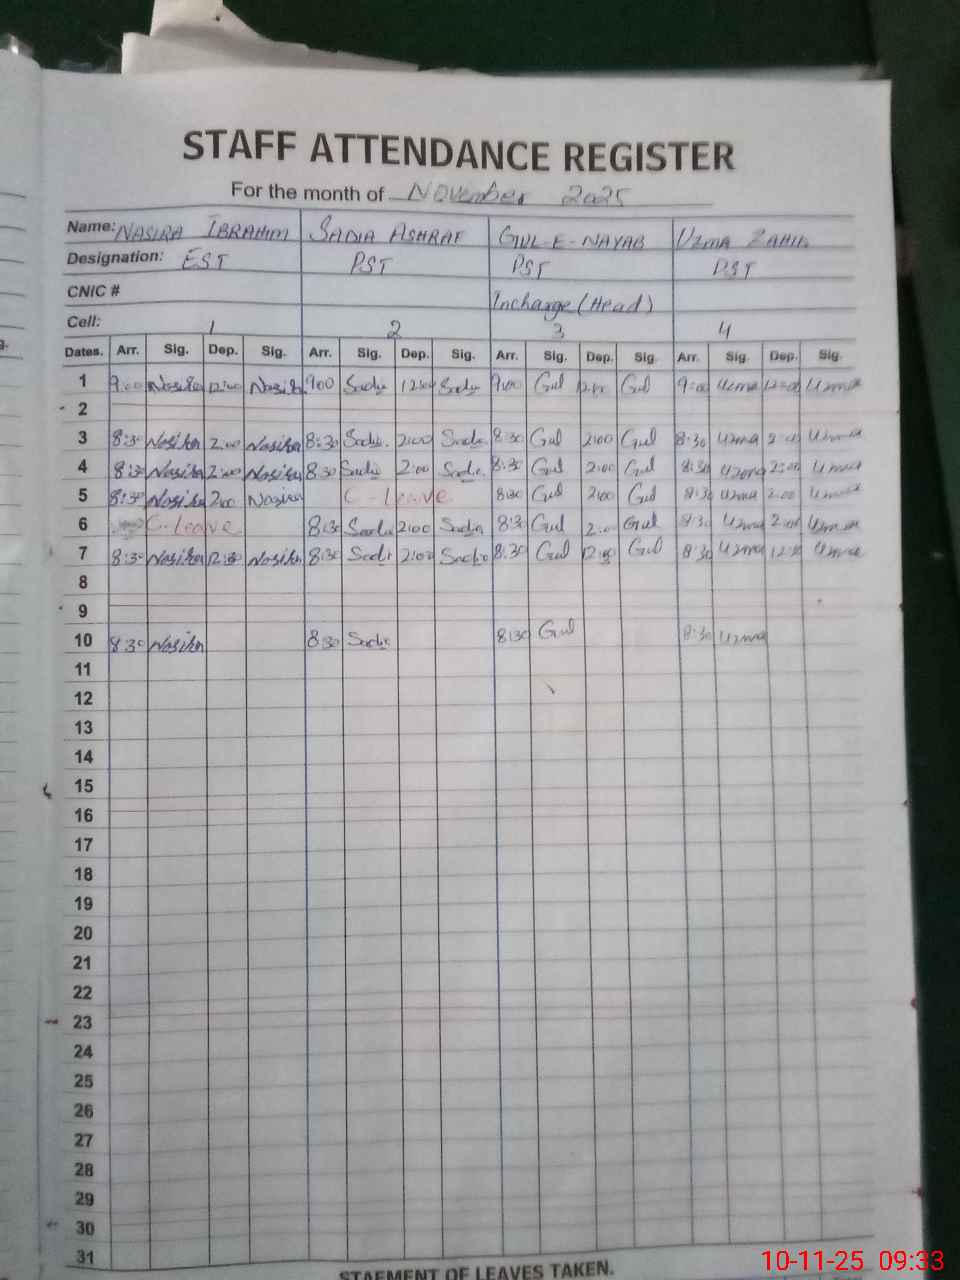 STAFF ATTENDANCE REGISTER
For the month of November 2025
Name: NASIRA IBRAHIM SADIA ASHRAF GUL-E-NAYAB UZMA ZAHID
Designation: EST PST PST PST
CNIC # Incharge (Head)
Cell: 1 2 3 4
g. Dates. Arr. Sig. Dep. Sig. Arr. Sig. Dep. Sig. Arr. Sig. Dep. Sig. Arr. Sig. Dep. Sig.
1 9:00 Nasira 12:00 Nasira 9:00 Sadia 12:00 Sadia 9:00 Gul 12:00 Gul 9:00 Uzma 12:00 Uzma
2
3 8:30 Nasira 2:00 Nasira 8:30 Sadia 2:00 Sadia 8:30 Gul 2:00 Gul 8:30 Uzma 2:00 Uzma
4 8:30 Nasira 2:00 Nasira 8:30 Sadia 2:00 Sadia 8:30 Gul 2:00 Gul 8:30 Uzma 2:00 Uzma
5 8:30 Nasira 2:00 Nasira C-Leave 8:30 Gul 2:00 Gul 8:30 Uzma 2:00 Uzma
6 C-Leave 8:30 Sadia 2:00 Sadia 8:30 Gul 2:00 Gul 8:30 Uzma 2:00 Uzma
7 8:30 Nasira 12:30 Nasira 8:30 Sadia 2:00 Sadia 8:30 Gul 12:30 Gul 8:30 Uzma 12:30 Uzma
8
9
10 8:30 Nasira 8:30 Sadia 8:30 Gul 8:30 Uzma
11
12
13
14
15
16
17
18
19
20
21
22
23
24
25
26
27
28
29
30
31
STAEMENT OF LEAVES TAKEN.
10-11-25 09:33